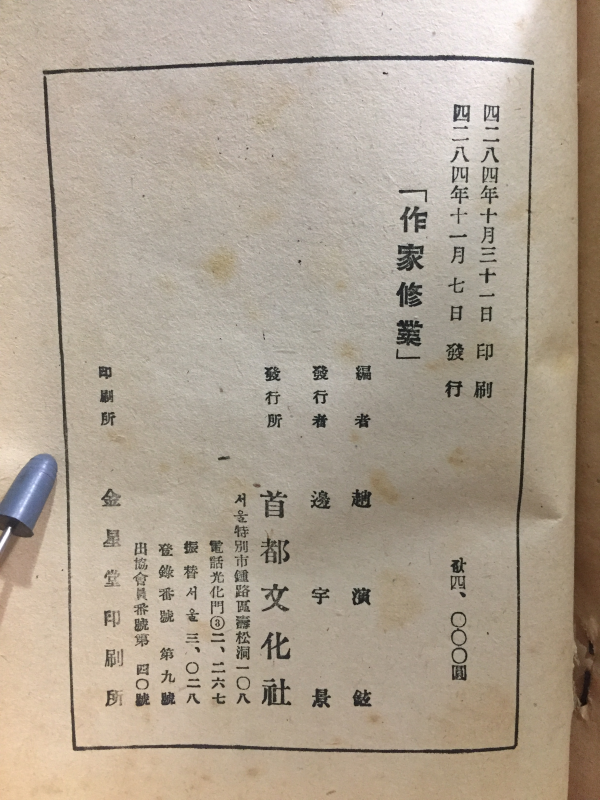 四二八四年十月三十一日 印刷
四二八四年十一月 七日 發行
「作家修業」
값四、〇〇〇圓
編者 趙演鉉
發行者 邊宇景
發行所 首都文化社
서울特別市鍾路區壽松洞一〇八
電話光化門③二、二六七
振替서울三、〇二八
登錄番號 第九號
出協會員番號第 四〇號
印刷所 金星堂印刷所